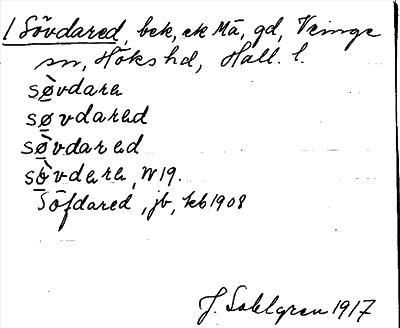 1 Sövdared, bek, ek Mä, gd, Veinge
sn, Höks hd, Hall. l.
sø̀vdara
søvdarad
sø̀vdarad
sø̀vdara, W19.
Söfdared, jb, kb 1908
J. Sahlgren 1917